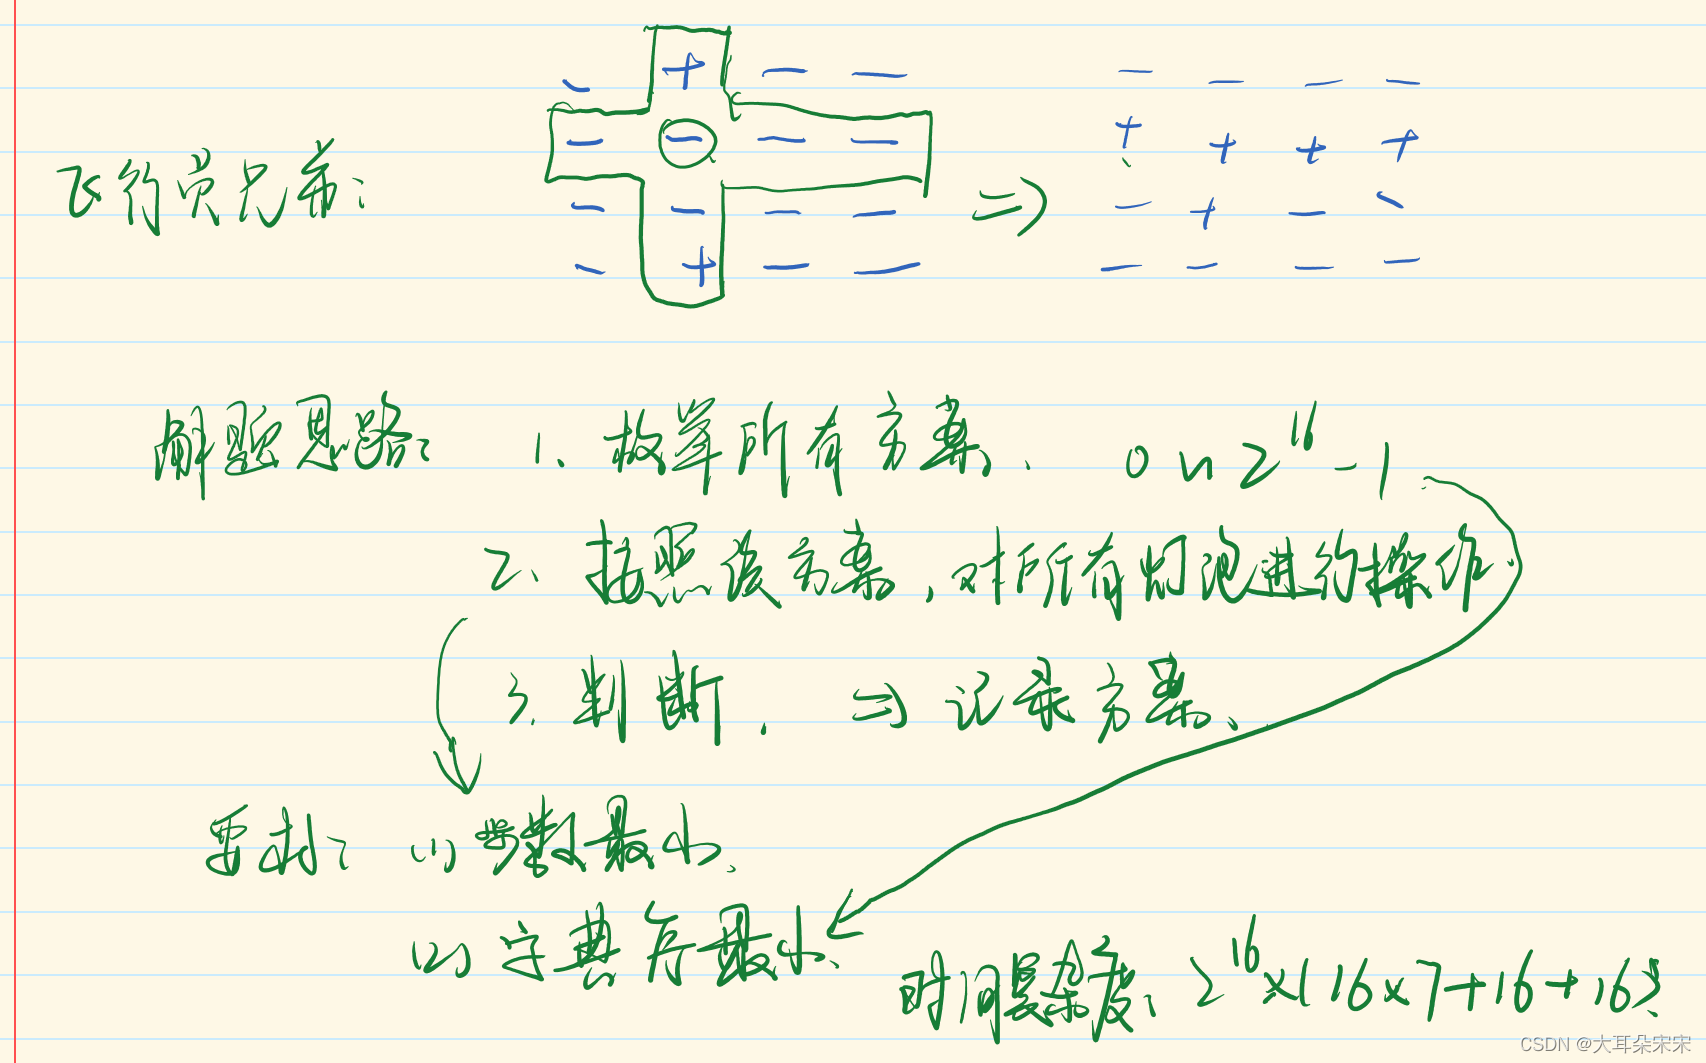 - + - - - - - -
- - - - + + + +
飞行员兄弟:
- - - - ⇒ - + - -
- + - - - - - -
解题思路: 1、枚举所有方案、 0 ~ 2^16 - 1
2、按照该方案,对所有灯泡进行操作
3、判断. ⇒ 记录方案、
要求: (1) 步数最小、
(2) 字典序最小、
时间复杂度: 2^16 × (16×7+16+16)
CSDN @大耳朵宋宋